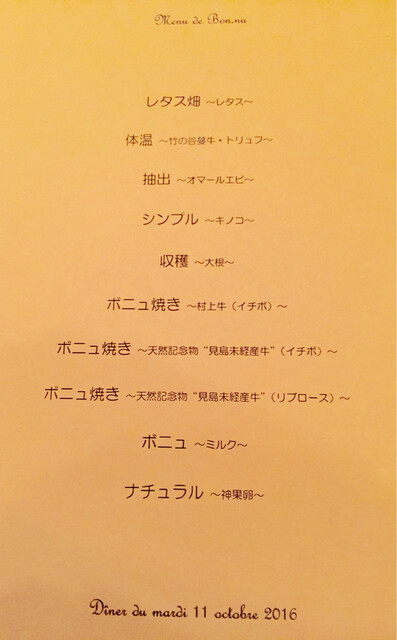 Menu de Bon.nu
レタス畑 〜レタス〜
体温 〜竹の谷蔓牛・トリュフ〜
抽出 〜オマールエビ〜
シンプル 〜キノコ〜
収穫 〜大根〜
ボニュ焼き 〜村上牛（イチボ）〜
ボニュ焼き 〜天然記念物“見島未経産牛”（イチボ）〜
ボニュ焼き 〜天然記念物“見島未経産牛”（リブロース）〜
ボニュ 〜ミルク〜
ナチュラル 〜神果卵〜
Dîner du mardi 11 octobre 2016